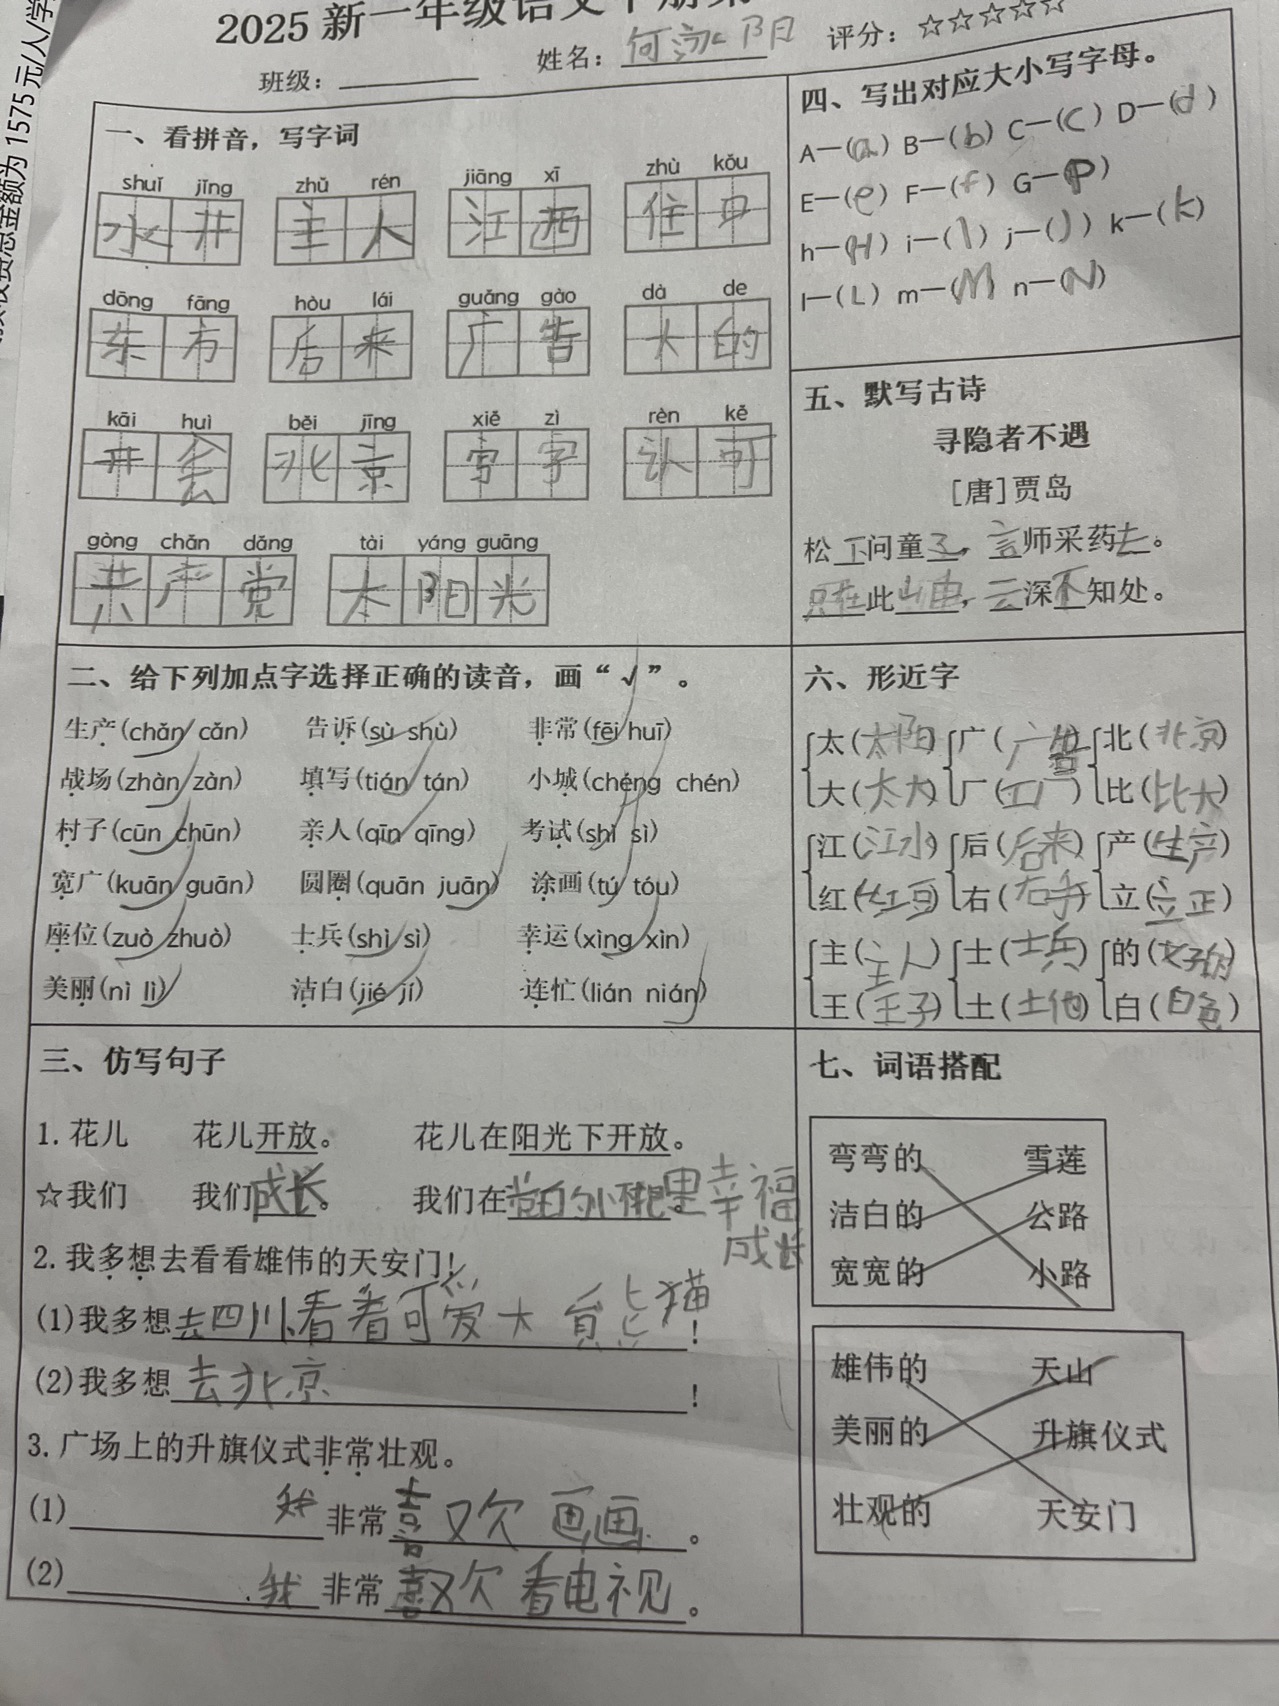 2025新一年级语文下册
班级：
姓名：何泳阳
评分：☆☆☆☆☆
1575元/人/学
一、看拼音，写字词
shuǐ jǐng zhǔ rén jiāng xī zhù kǒu
水井 主人 江西 住口
dōng fāng hòu lái guǎng gào dà de
东方 后来 广告 大的
kāi huì běi jīng xiě zì rèn kě
开会 北京 写字 认可
gòng chǎn dǎng tài yáng guāng
共产党 太阳光
二、给下列加点字选择正确的读音，画“√”。
生产(chǎn cǎn) 告诉(sù shù) 非常(fēi huī)
战场(zhàn zàn) 填写(tián tán) 小城(chéng chén)
村子(cūn chūn) 亲人(qīn qīng) 考试(shì sì)
宽广(kuān guān) 圆圈(quān juān) 涂画(tú tóu)
座位(zuò zhuò) 士兵(shì sì) 幸运(xìng xìn)
美丽(nì lì) 洁白(jié jí) 连忙(lián nián)
三、仿写句子
1.花儿 花儿开放。 花儿在阳光下开放。
☆我们 我们成长。 我们在党的 里幸福
成长
2.我多想去看看雄伟的天安门！
(1)我多想去四川看着可爱大熊猫！
(2)我多想去北京！
3.广场上的升旗仪式非常壮观。
(1)我非常喜欢画画。
(2)我非常喜欢看电视。
四、写出对应大小写字母。
A—(a) B—(b) C—(c) D—(d)
E—(e) F—(f) G—( )
h—(H) i—(l) j—(J) k—(k)
l—(L) m—(M) n—(N)
五、默写古诗
寻隐者不遇
[唐]贾岛
松下问童子，言师采药去。
只在此山中，云深不知处。
六、形近字
太(太阳) 广(广告) 北(北京)
大(太大) 厂(工厂) 比(比大)
江(江水) 后(后来) 产(生产)
红(红豆) 右(右手) 立(立正)
主(主人) 士(士兵) 的(女子的)
王(王子) 土(土地) 白(白色)
七、词语搭配
弯弯的 雪莲
洁白的 公路
宽宽的 小路
雄伟的 天山
美丽的 升旗仪式
壮观的 天安门